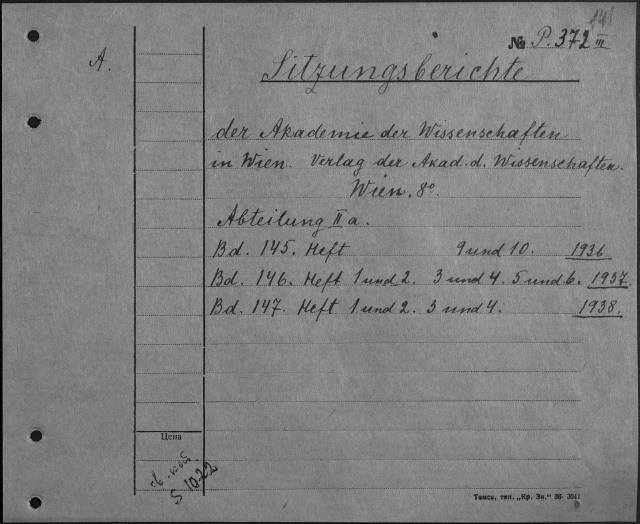 141
№ P. 372 III
A.
Sitzungsberichte
der Akademie der Wissenschaften
in Wien. Verlag der Akad. d. Wissenschaften.
Wien. 8°.
Abteilung II a.
Bd. 145. Heft 9 und 10. 1936
Bd. 146. Heft 1 und 2. 3 und 4. 5 und 6. 1937.
Bd. 147. Heft 1 und 2. 3 und 4. 1938.
Цена
S 1022
Томск, тип. „Кр. Зн.“ 36- 3041